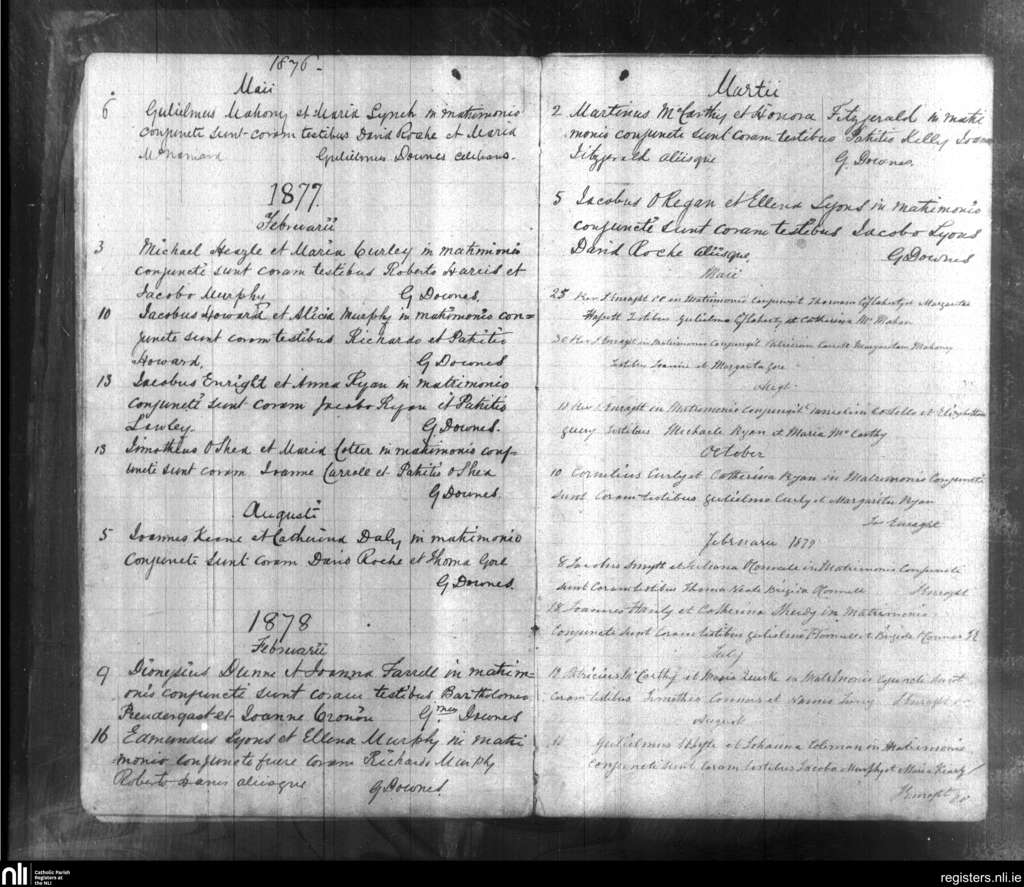 1876
Maii
6 Gulielmus Mahony et Maria Lynch in matrimonio
conjuncte sunt coram testibus David Roche et Maria
McNamara Gulielmus Downes celebans.
1877.
Februarii
3 Michael Heagle et Maria Curley in matrimonio
conjuncte sunt coram testibus Roberto Harris et
Jacobo Murphy G Downes.
10 Jacobus Howard et Alicia Murphy in matrimonio con=
juncte sunt coram testibus Richardo et Patritio
Howard. G Downes
13 Jacobus Enright et Anna Ryan in matrimonio
conjuncte sunt coram Jacobo Ryan et Patritio
Lawley. G Downes.
13 Timotheus O'Shea et Maria Cotter in matrimonio conj=
uncte sunt coram Joanne Carroll et Patritio O'Shea
G Downes.
Augusti
5 Joannes Keane et Catherina Daly in matrimonio
conjuncte sunt coram David Roche et Thoma Gore
G Downes.
1878
Februarii
9 Dionysius Dunne et Joanna Farrell in matrim=
onio conjuncte sunt coram testibus Bartholomeo
Prendergast et Joanne Cronin Downes
16 Edmundus Lyons et Ellena Murphy in matri
monio conjuncte fuere coram Richardo Murphy
Roberto aliisque G Downes.
Martii
2 Martinus McCarthy et Honora Fitzgerald in matri
monio conjuncte sunt coram testibus Patritio Kelly
Fitzgerald aliisque G. Downes.
5 Jacobus O'Regan et Ellena Lyons in matrimonio
conjuncte sunt coram testibus Jacobo Lyons
David Roche aliisque. G Downes
Maii
25 Rev Enraght in Matrimonio conjunxit Thomam O'Flaherty et Margaritam
testibus Gulielmo O'Flaherty et Catherina McMahon
30 Rev Enraght in Matrimonio Conjunxit Patricium Margaritam Mahony
Testibus Joanne et Margarita Gore
10 Rev Enraght in Matrimonio Conjunxit Costello et
testibus Michaele Ryan et Maria McCarthy
October
10 Cornelius Curly et Catherina Ryan in Matrimonio Conjuncti
sunt Coram testibus Gulielmo Curly et Margarita Ryan
Enraght
Februarii 1879
8 Jacobus Smyth et in Matrimonio Conjuncte
sunt Coram testibus Thoma Neale Brigida
18 Joannes Hanly et Catherina Sheedy in Matrimonio
Conjuncte Sunt Coram testibus Gulielmo et Brigida
July
10 Patricius McCarthy et Maria in Matrimonio sunt
Coram testibus Timotheo Connors et
August
Gulielmus et Johanna Coleman in Matrimonio
Conjuncte Sunt Coram testibus Jacobo Murphy et Maria
Enraght
nli Catholic Parish
Registers at
the NLI
registers.nli.ie